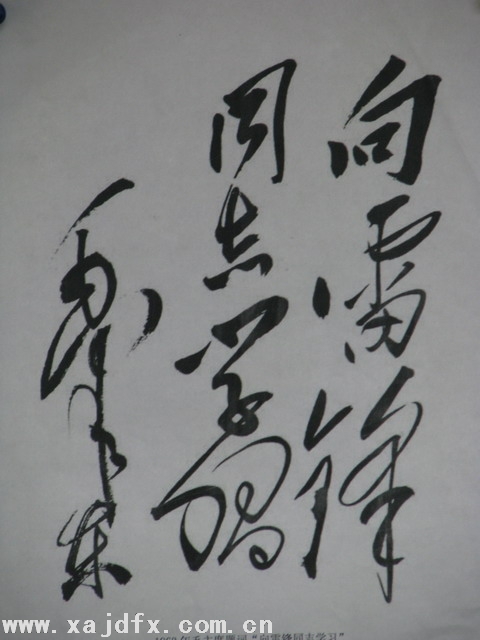 向雷锋
同志学习
毛泽东
1963年毛主席题词“向雷锋同志学习”
www.xajdfx.com.cn